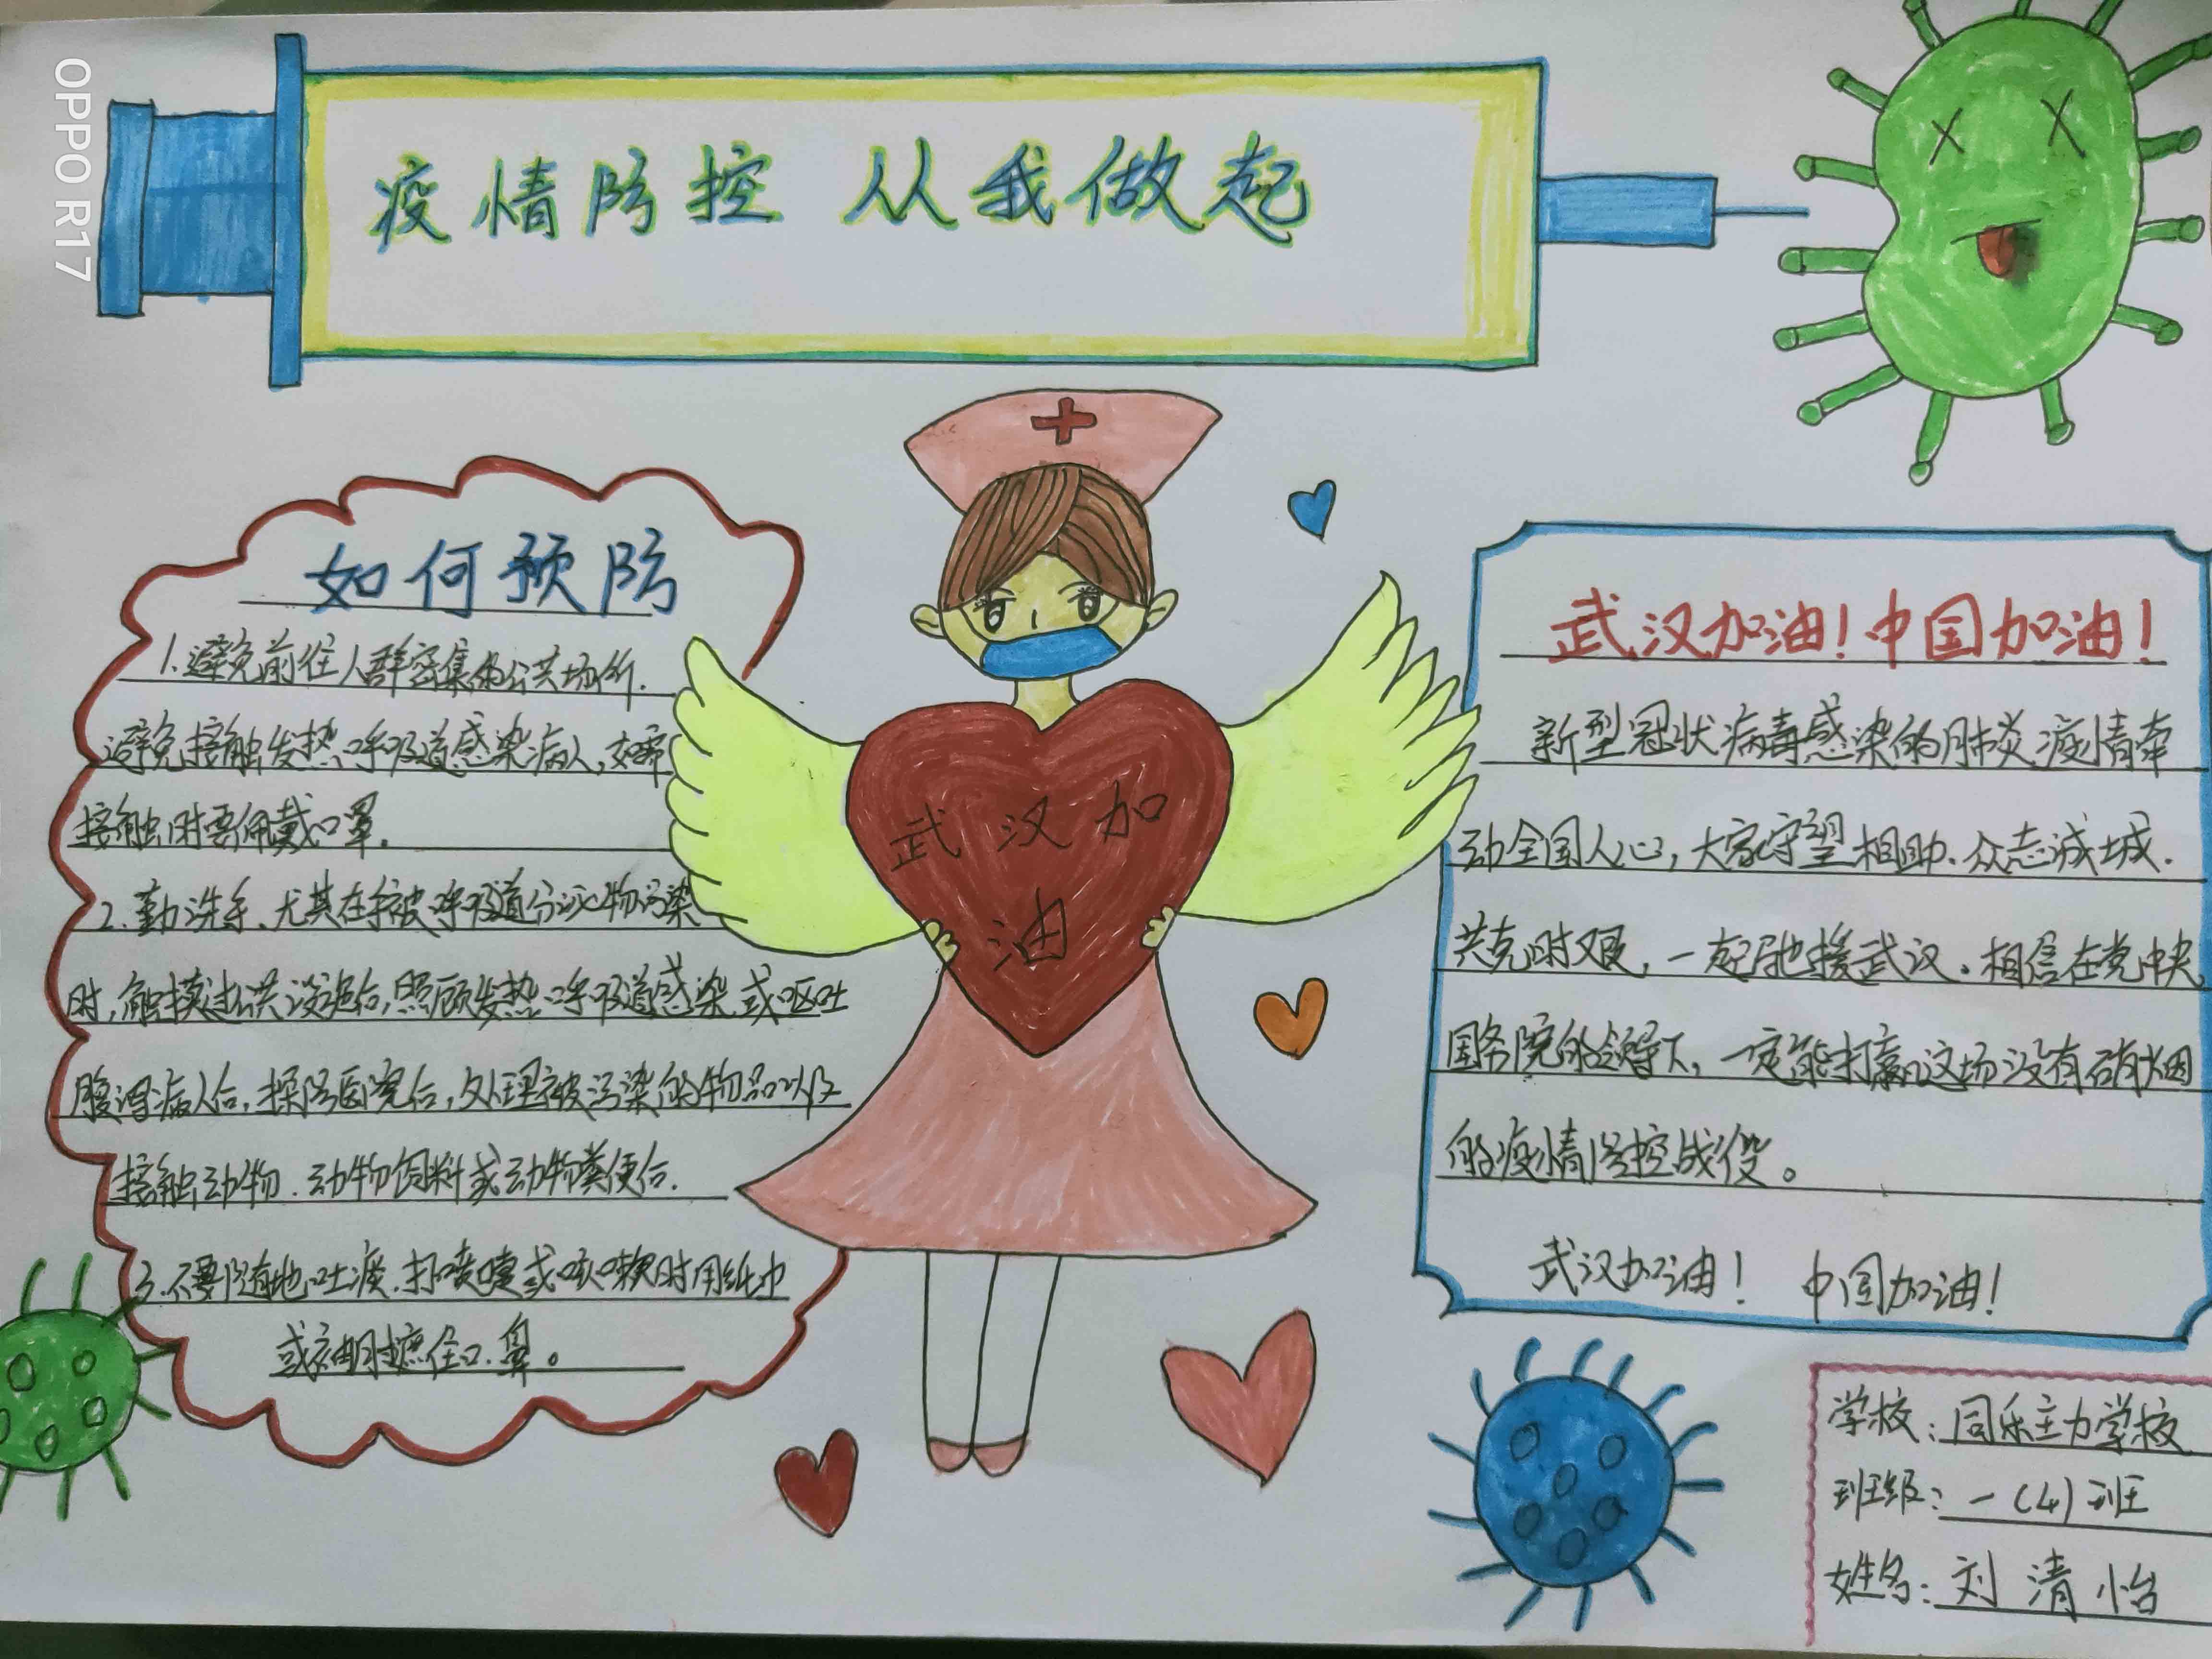 OPPO R17
疫情防控 从我做起
如何预防
1.避免前往人群密集的公共场所.
避免接触发热呼吸道感染病人,如需
接触时要佩戴口罩.
2.勤洗手、尤其在手被呼吸道分泌物污染
时,触摸过公共设施后,照顾发热呼吸道感染或呕吐
腹泻病人后,探访医院后,处理被污染的物品以及
接触动物、动物饲料或动物粪便后.
3.不要随地吐痰.打喷嚏或咳嗽时用纸巾
或衣袖遮住口、鼻。
武汉加
油
武汉加油!中国加油!
新型冠状病毒感染的肺炎疫情牵
动全国人心,大家守望相助、众志成城.
共克时艰,一起驰援武汉。相信在党中央
国务院的领导下,一定能打赢这场没有硝烟
的疫情防控战役。
武汉加油! 中国加油!
学校:同乐主力学校
班级:一(4)班
姓名:刘清怡